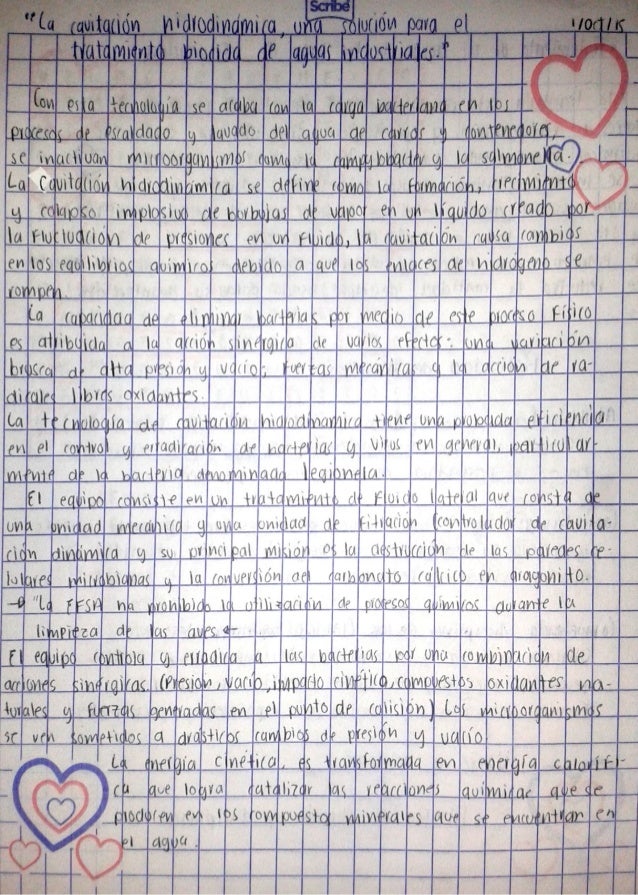 Scribe
"La cavitación hidrodinámica, una solución para el
tratamiento biocida de aguas industriales."
Con esta technología se acaba con la carga bacteriana en los
procesos de escaldado y lavado del agua de carros y contenedores,
se inactivan microorganismos como la campylobacter y la salmonella.
La Cavitación hidrodinámica se define como la formación, crecimiento
y colapso implosivo de borbujas de vapor en un líquido creado por
la Fluctuación de presiones en un Fluido, la cavitación causa cambios
en los equilibrios químicos debido a que los enlaces de hidrógeno se
rompen.
La capacidad de eliminar bacterias por medio de este proceso Físico
es atribuida a la acción sinérgica de varios efectos: una variación
brusca de alta presión y vacío; Fuerzas mecánicas y la acción de ra-
dicales libres oxidantes.
La tecnología de cavitación hidrodinámica tiene una probada eficiencia
en el control y erradicación de bacterias y virus en general, particular-
mente de la bacteria denominada legionela.
El equipo consiste en un tratamiento de Fluido lateral que consta de
una unidad mecánica y una unidad de Filtración (controlador de cavita-
ción dinámica y su principal misión es la destrucción de las paredes ce-
lulares microbianas y la conversión del carbonato cálcico en aragonito.
"La EFSA ha prohibido la utilización de procesos químicos durante la
limpieza de las aves
El equipo controla y erradica a las bacterias por una combinación de
acciones sinérgicas (Presión, vacío, impacto cinético, compuestos oxidantes na-
turales y fuerzas centradas en el punto de colisión) Los microorganismos
se ven sometidos a drásticos cambios de presión y vacío.
La energía cinética, es transformada en energía calorífi-
ca que logra catalizar las reacciones químicas que se
producen en los compuestos minerales que se encuentran en
el agua.